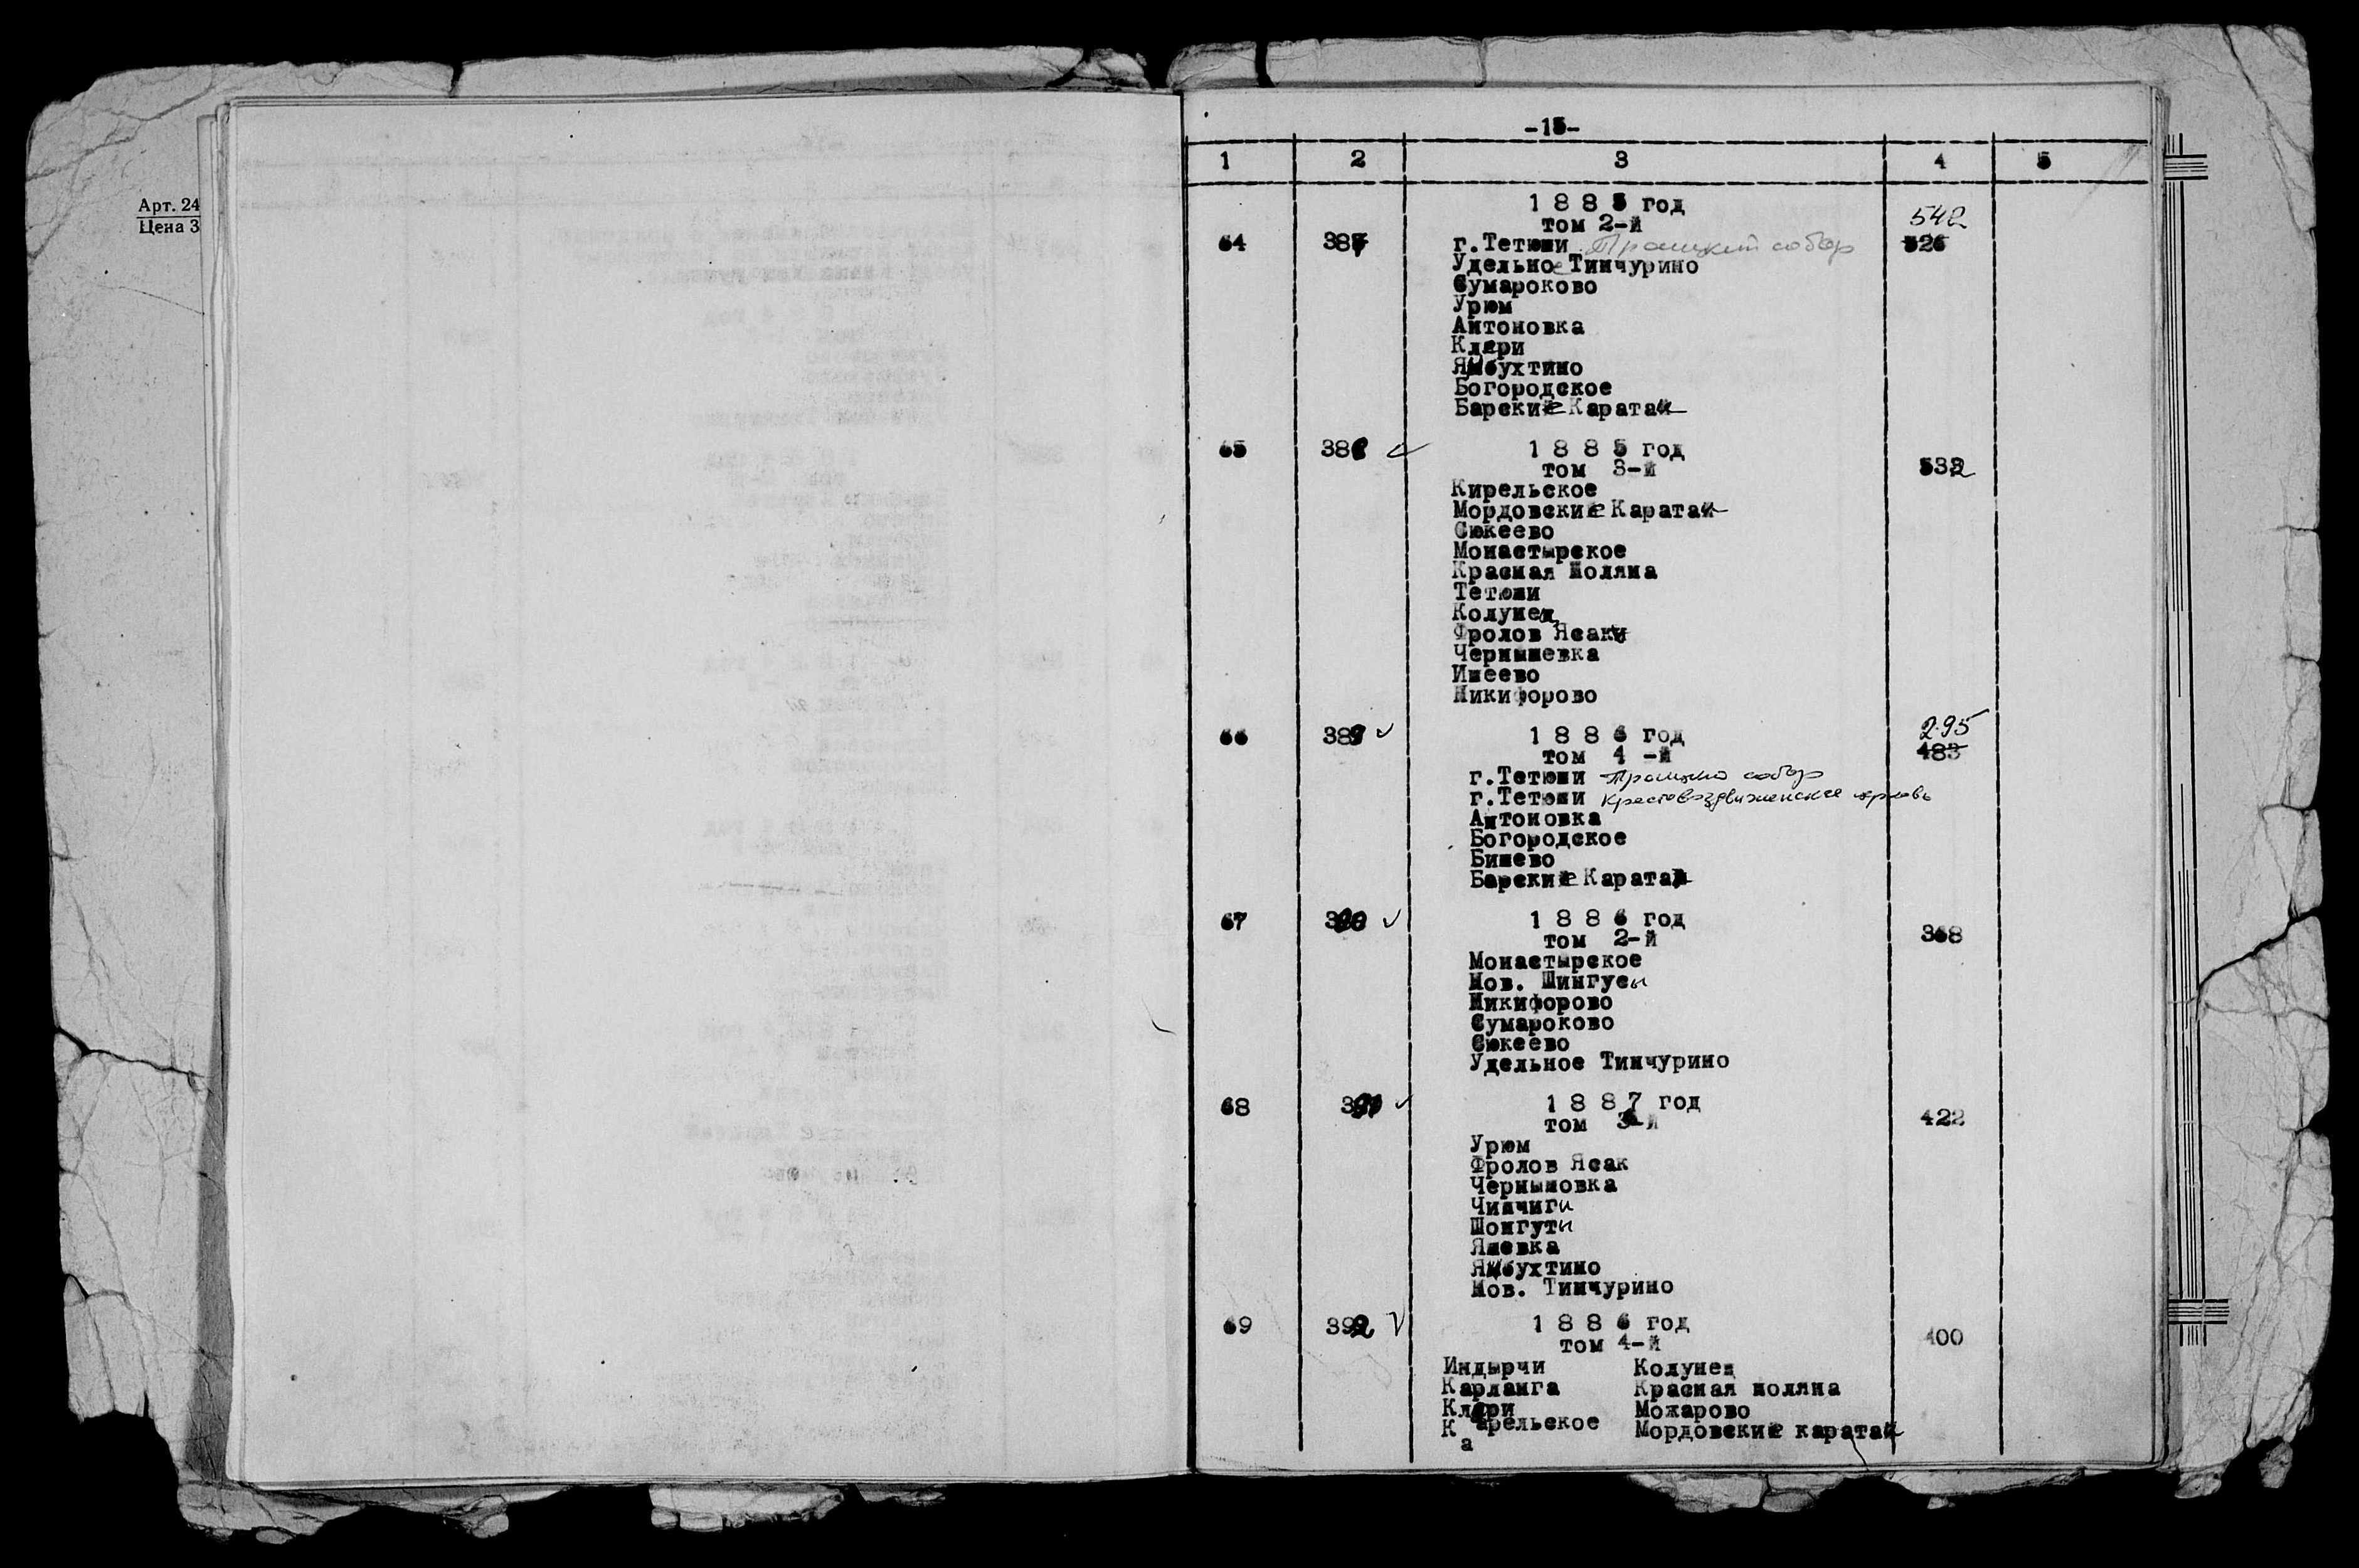 Арт. 24
Цена 3
-15-
1 2 3 4 5
1 8 8 5 год
том 2-й
542
64 387 г.Тетюши Троицкий собор 526
Удельное Тинчурино
Сумароково
Урюм
Антоновка
Кляри
Ямбухтино
Богородское
Барские Каратаи
65 388 1 8 8 5 год
том 3-й 532
Кирельское
Мордовские Каратаи
Сюкеево
Монастырское
Красная Поляна
Тетюши
Колунец
Фролов Ясак
Чернышевка
Ишеево
Никифорово
295
66 389 1 8 8 6 год
том 4 -й 483
г.Тетюши Троицкий собор
г.Тетюши Крестовоздвиженская церковь
Антоновка
Богородское
Бишево
Барские Каратаи
67 390 1 8 8 6 год
том 2-й 368
Монастырское
Нов. Шингуты
Никифорово
Сумароково
Сюкеево
Удельное Тинчурино
68 391 1 8 8 7 год
том 3-й 422
Урюм
Фролов Ясак
Чернышовка
Чинчиги
Шонгуты
Яшевка
Ямбухтино
Нов. Тинчурино
69 392 1 8 8 6 год
том 4-й 400
Индырчи Колунец
Карланга Красная поляна
Кляри Можарово
Карельское Мордовские каратаи